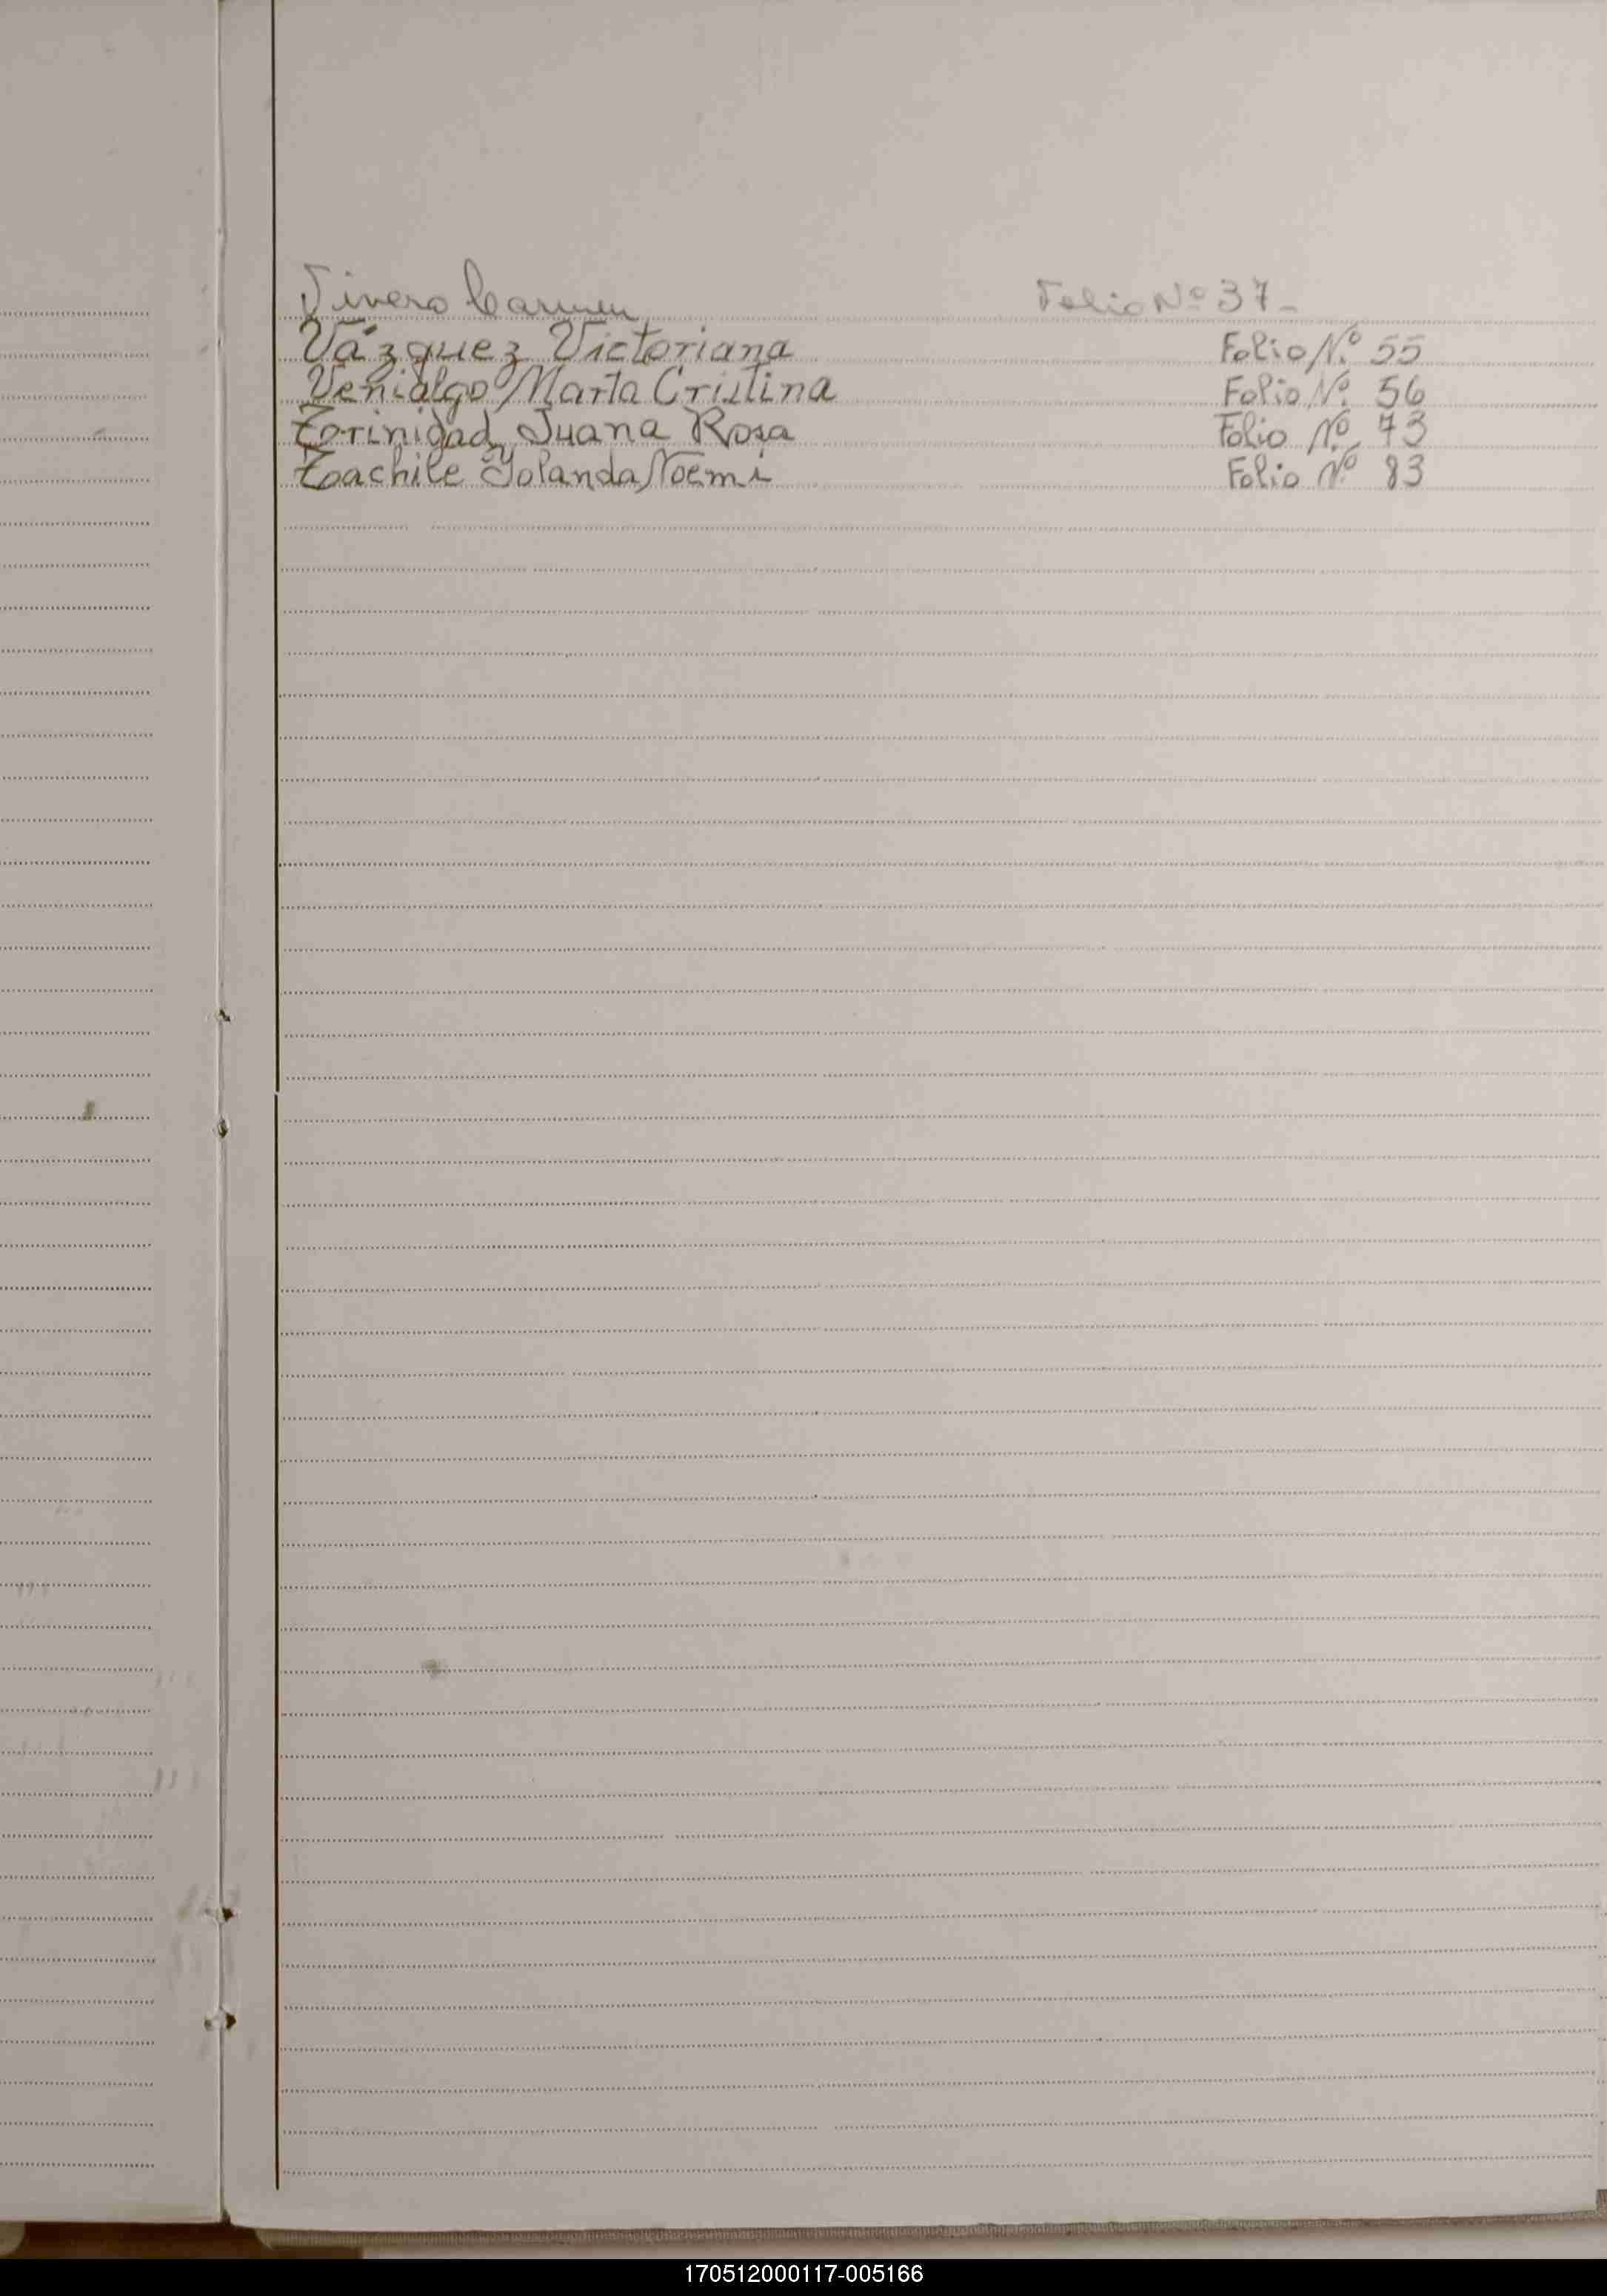 Vivero Carmen Folio Nº 37-
Vázquez Victoriana Folio Nº 55
Venialgo Marta Cristina Folio Nº 56
Torinidad Juana Rosa Folio Nº 73
Toachile Yolanda Noemi Folio Nº 83
170512000117-005166